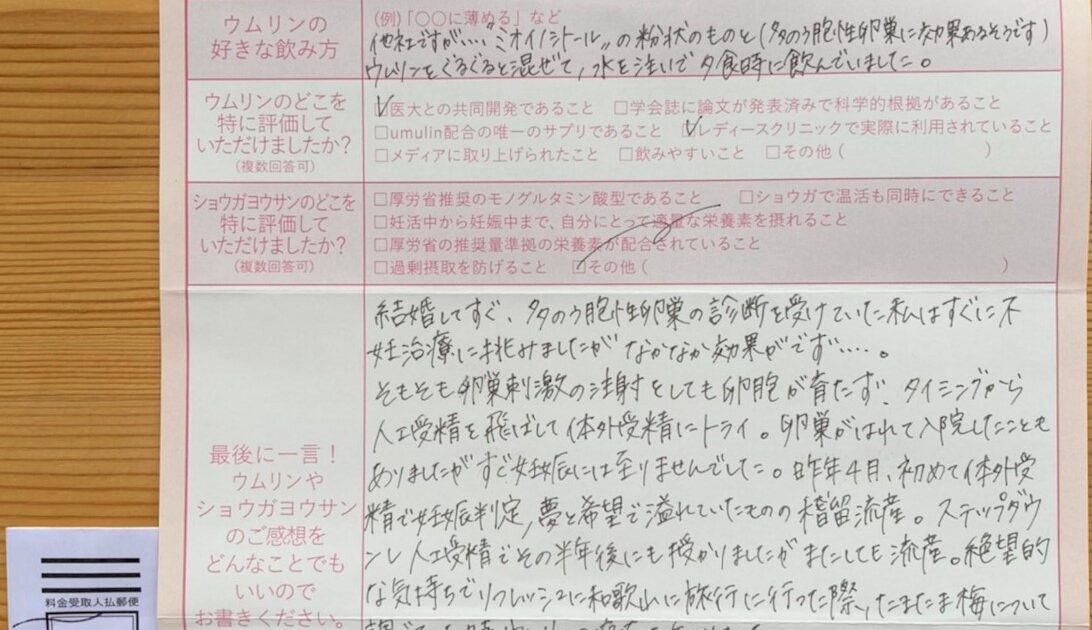 ウムリンの
好きな飲み方
(例)「〇〇に薄める」など
他社ですが‥‥"ミオイノシトール"の粉状のものと(多のう胞性卵巣に効果あるそうです)
ウムリンをぐるぐると混ぜて、水を注いで夕食時に飲んでいました。
ウムリンのどこを
特に評価して
いただけましたか?
(複数回答可)
☑医大との共同開発であること □学会誌に論文が発表済みで科学的根拠があること
□umulin配合の唯一のサプリであること ☑レディースクリニックで実際に利用されていること
□メディアに取り上げられたこと □飲みやすいこと □その他( )
ショウガヨウサンのどこを
特に評価して
いただけましたか?
(複数回答可)
□厚労省推奨のモノグルタミン酸型であること □ショウガで温活も同時にできること
□妊活中から妊娠中まで、自分にとって適量な栄養素を摂れること
□厚労省の推奨量準拠の栄養素が配合されていること
□過剰摂取を防げること □その他( )
最後に一言!
ウムリンや
ショウガヨウサン
のご感想を
どんなことでも
いいので
お書きください。
結婚してすぐ、多のう胞性卵巣の診断を受けていた私はすぐに不
妊治療に挑みましたがなかなか効果がでず‥‥。
そもそも卵巣刺激の注射をしても卵胞が育たず、タイミングから
人工受精を飛ばして体外受精にトライ。卵巣がはれて入院したことも
ありましたがすぐ妊娠には至りませんでした。昨年4月、初めて体外受
精で妊娠判定、夢と希望で溢れていたものの稽留流産。ステップダウ
ンし人工受精でその半年後にも授かりましたがまたしても流産。絶望的
な気持ちでリフレッシュに和歌山に旅行に行った際、たまたま梅について
料金受取人払郵便